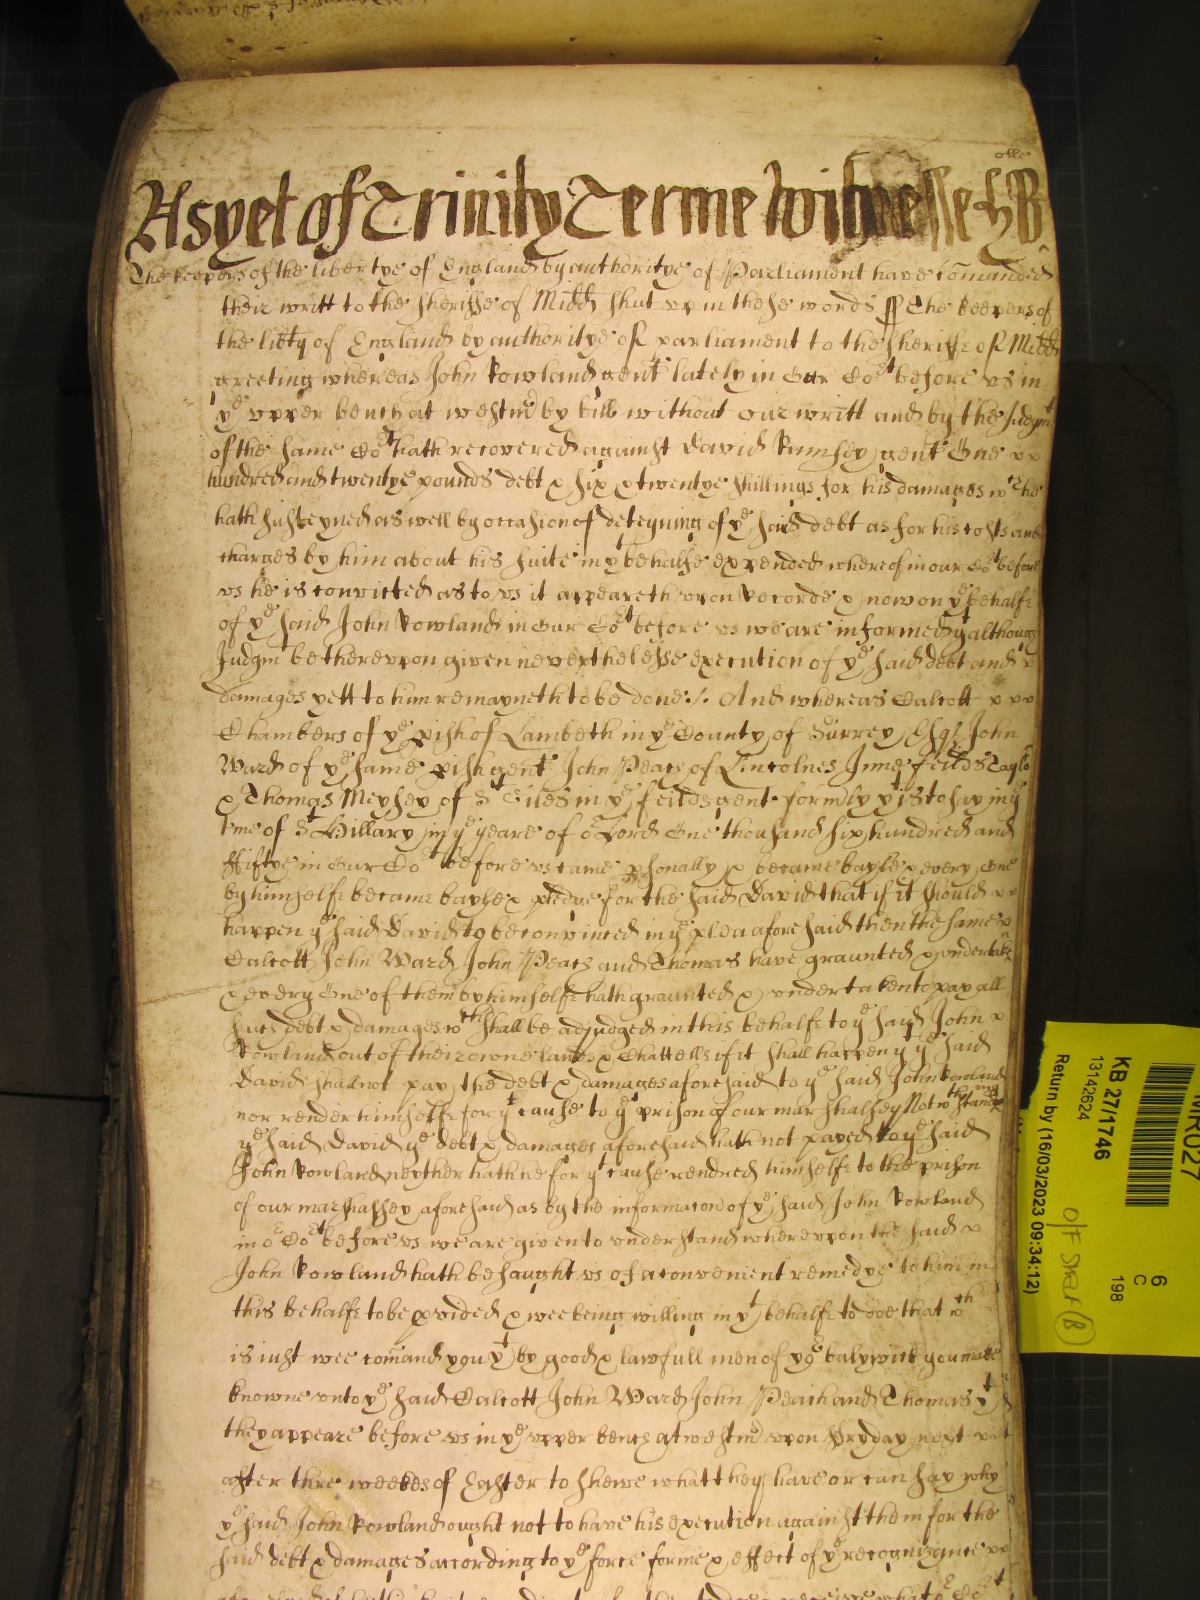 olle
As yet of Trinity Terme Witnesse H R
The keepers of the libertye of England by authoritye of Parliament have comanded
their writt to the sheriffe of Midd shut upp in these words ss The keepers of
the libty of England by authoritye of parliament to the sheriffe of Midd
greeting whereas John Rowland gent lately in our Cot before us in
ye upper bench at westmr by bill without our writt and by the Judgmt
of the same Cot hath recovered against David Rumsey gent One
hundred and twentye pounds debt & six & twentye shillings for his damages wch he
hath susteyned as well by occasion of deteyning of ye said debt as for his costs and
charges by him about his suite in yt behalfe expended whereof in our Cot before
us he is convicted as to us it appeareth upon Recorde & now on ye behalfe
of ye said John Rowland in our Cot before us we are informed yt although
Judgmt be thereupon given neverthelesse execution of ye said debt and
damages yett to him remayneth to be done /. And whereas Calcott
Chambers of ye pish of Lambeth in ye County of Surrey Esqr John
Ward of ye same pish gent John Pears of Lincolnes Inne feilds Taylor
& Thomas Meysey of St Giles in ye feilds gent formly yt is to say in ye
tme of St Hillary in ye yeare of or Lord One thousand six hundred and
ffiftye in our Cot before us came psonally & became bayle & every one
by himselfe became bayle & pledge for the said David that if it should
happen ye said David to be convinced in ye plea aforesaid then the same
Calcott John Ward John Pears and Thomas have graunted & undertaken
& every One of them by himselfe hath graunted & undertaken to pay all
such debt & damages wch shall be adjudged in this behalfe to ye said John
Rowland out of their owne lands & Chattells if it shall happen yt ye said
David shall not pay the debt & damages aforesaid to ye said John Rowland
nor render himselfe for yt cause to ye prison of our marshalsey Notwthstanding
ye said David ye debt & damages aforesaid hath not payed to ye said
John Rowland neyther hath he for yt cause rendred himselfe to the prison
of our marshalsey aforesaid as by the informacon of ye said John Rowland
in or Cot before us we are given to understand whereupon the said
John Rowland hath besaught us of a convenient remedye to him in
this behalfe to be pvided & wee being willing in yt behalfe to doe that wch
is iust wee comand you yt by good & lawfull men of yor balywick you make
knowne unto ye said Calcott John Ward John Pears and Thomas yt
they appeare before us in ye upper bench at westmr upon ffryday next
after three weekes of Easter to shewe what they have or can say why
ye said John Rowland ought not to have his execution against them for the
said debt & damages according to ye force forme & effect of ye recognizance
MR027
KB 27/1746
13142624
Return by (16/03/2023 09:34:12)
6
C
198